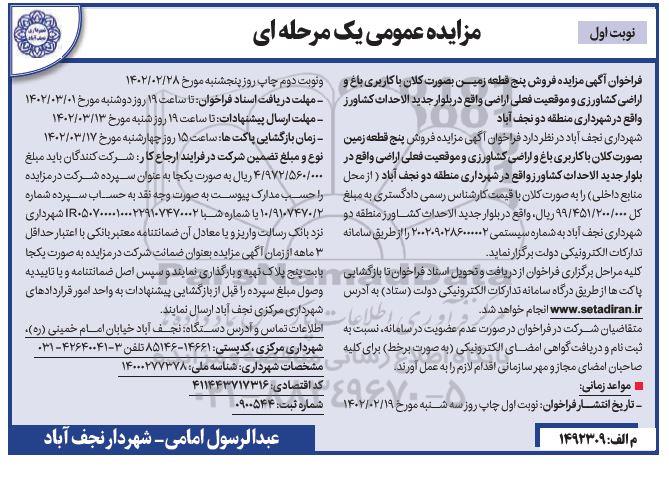 نوبت اول
مزایده عمومی یک مرحله ای
شهرداری نجف آباد
فراخوان آگهی مزایده فروش پنج قطعه زمین بصورت کلان با کاربری باغ و
اراضی کشاورزی و موقعیت فعلی اراضی واقع در بلوار جدید الاحداث کشاورز
واقع در شهرداری منطقه دو نجف آباد
شهرداری نجف آباد در نظر دارد فراخوان آگهی مزایده فروش پنج قطعه زمین
بصورت کلان با کاربری باغ و اراضی کشاورزی و موقعیت فعلی اراضی واقع در
بلوار جدید الاحداث کشاورز واقع در شهرداری منطقه دو نجف آباد ( از محل
منابع داخلی) را به صورت کلان با قیمت کارشناس رسمی دادگستری به مبلغ
کل ۹۹/۴۵۱/۲۰۰/۰۰۰ ریال، واقع در بلوار جدید الاحداث کشاورز منطقه دو
شهرداری نجف آباد به شماره سیستمی ۲۰۰۲۰۹۰۲۸۶۰۰۰۰۰۲ را از طریق سامانه
تدارکات الکترونیکی دولت برگزار نماید.
کلیه مراحل برگزاری فراخوان از دریافت و تحویل اسناد فراخوان تا بازگشایی
پاکت ها از طریق درگاه سامانه تدارکات الکترونیکی دولت (ستاد) به آدرس
www.setadiran.ir انجام خواهد شد.
متقاضیان شرکت در فراخوان در صورت عدم عضویت در سامانه، نسبت به
ثبت نام و دریافت گواهی امضای الکترونیکی (به صورت برخط) برای کلیه
صاحبان امضای مجاز و مهر سازمانی اقدام لازم را به عمل آورند.
مواعد زمانی:
- تاریخ انتشار فراخوان: نوبت اول چاپ روز سه شنبه مورخ ۱۴۰۲/۰۲/۱۹
ونوبت دوم چاپ روز پنجشنبه مورخ ۱۴۰۲/۰۲/۲۸
- مهلت دریافت اسناد فراخوان: تا ساعت ۱۹ روز دوشنبه مورخ ۱۴۰۲/۰۳/۰۱
- مهلت ارسال پیشنهادات: تا ساعت ۱۹ روز شنبه مورخ ۱۴۰۲/۰۳/۱۳
- زمان بازگشایی پاکت ها: ساعت ۱۵ روز چهارشنبه مورخ ۱۴۰۲/۰۳/۱۷
نوع و مبلغ تضمین شرکت در فرایند ارجاع کار: شرکت کنندگان باید مبلغ
۴/۹۷۲/۵۶۰/۰۰۰ ریال به صورت یکجا به عنوان سپرده شرکت در مزایده
را حسب مدارک پیوست به صورت وجه نقد به حساب سپرده شماره
۱۰/۹۱۰۷۴۷۰/۲ یا شماره شبا IR۰۵۰۷۰۰۰۰۱۰۰۰۲۲۹۱۰۷۴۷۰۰۲ شهرداری
نزد بانک رسالت واریز و یا معادل آن ضمانتنامه معتبر بانکی با اعتبار حداقل
۳ ماهه از زمان آگهی مزایده بعنوان ضمانت شرکت در مزایده به صورت یکجا
بابت پنج پلاک تهیه و بارگذاری نمایند و سپس اصل ضمانتنامه و یا تاییدیه
وصول مبلغ سپرده را قبل از بازگشایی پیشنهادات به واحد امور قراردادهای
شهرداری مرکزی نجف آباد ارسال نمایند.
اطلاعات تماس و آدرس دستگاه: نجف آباد خیابان امام خمینی (ره)،
شهرداری مرکزی ، کدپستی: ۱۴۶۶۱-۸۵۱۴۶ تلفن ۳-۴۲۶۴۰۰۴۱-۰۳۱
مشخصات شهرداری: شناسه ملی: ۱۴۰۰۰۲۷۷۳۷۸
کد اقتصادی: ۴۱۱۴۴۳۷۱۷۳۱۶
شماره ثبت: ۰۹۰۰۵۴۴
م الف: ۱۴۹۲۳۰۹
عبدالرسول امامی- شهردار نجف آباد
ParsNamadData